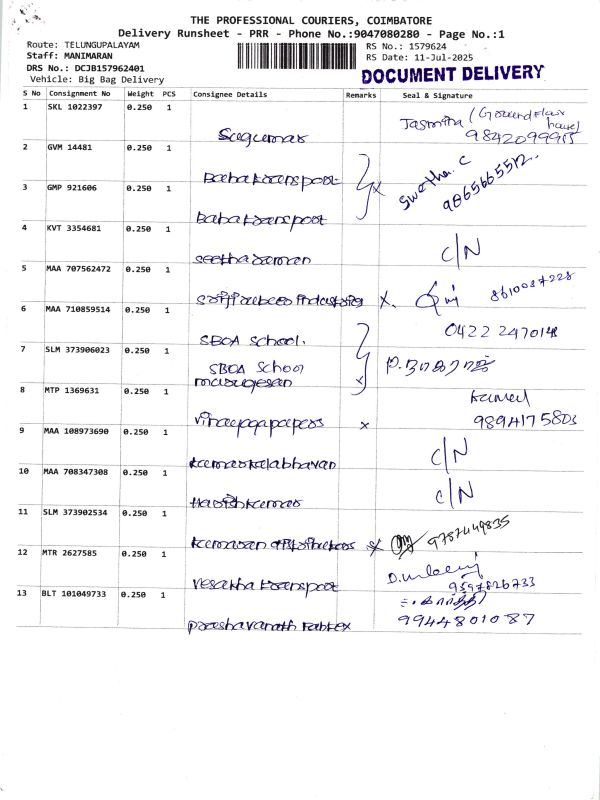 THE PROFESSIONAL COURIERS, COIMBATORE
Delivery Runsheet - PRR - Phone No.:9047080280 - Page No.:1
Route: TELUNGUPALAYAM
Staff: MANIMARAN
DRS No.: DCJB157962401
Vehicle: Big Bag Delivery
RS No.: 1579624
RS Date: 11-Jul-2025
DOCUMENT DELIVERY
S No Consignment No Weight PCS Consignee Details Remarks Seal & Signature
1 SKL 1022397 0.250 1 Sugumar Jasmitha (Ground Floor house) 9842099915
2 GVM 14481 0.250 1 Baba transport Swetha. C 9865665512
3 GMP 921606 0.250 1 Baba transport
4 KVT 3354681 0.250 1 seetharaman C/N
5 MAA 707562472 0.250 1 x. 8610037228
6 MAA 710859514 0.250 1 SBOA School. 0422 2470148
7 SLM 373906023 0.250 1 SBOA School murugesan x
8 MTP 1369631 0.250 1 vinayagapapers x Kumar 9894175803
9 MAA 108973690 0.250 1 kumarkalabhavan C/N
10 MAA 708347308 0.250 1 Harishkumar C/N
11 SLM 373902534 0.250 1 kumaran x 9787449835
12 MTR 2627585 0.250 1 vesakha transport 9597826733
13 BLT 101049733 0.250 1 parashavanath Fabtex 9944801087